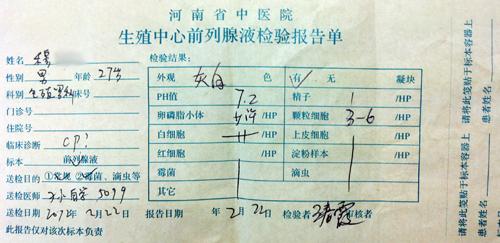 河南省中医院
生殖中心前列腺液检验报告单
姓名
性别 男 年龄 27岁
科别 生殖男科 床号
门诊号
住院号
临床诊断 CP?
标本 前列腺液
送检目的 ①常规 ②霉菌、滴虫等
送检医师 5099
检验结果:
外观 灰白 色 有/无 凝块
PH值 7.2 精子 /HP
卵磷脂小体 /HP 颗粒细胞 3-6 /HP
白细胞 /HP 上皮细胞 /HP
红细胞 /HP 淀粉样本 /HP
霉菌 滴虫
其它
送检日期 2012年2月22日 报告日期 年2月22日 检验者 审核者
此报告仅对该次标本负责
请将此笺贴于标本容器上
患者姓名
请将此笺贴于标本容器上
患者姓名